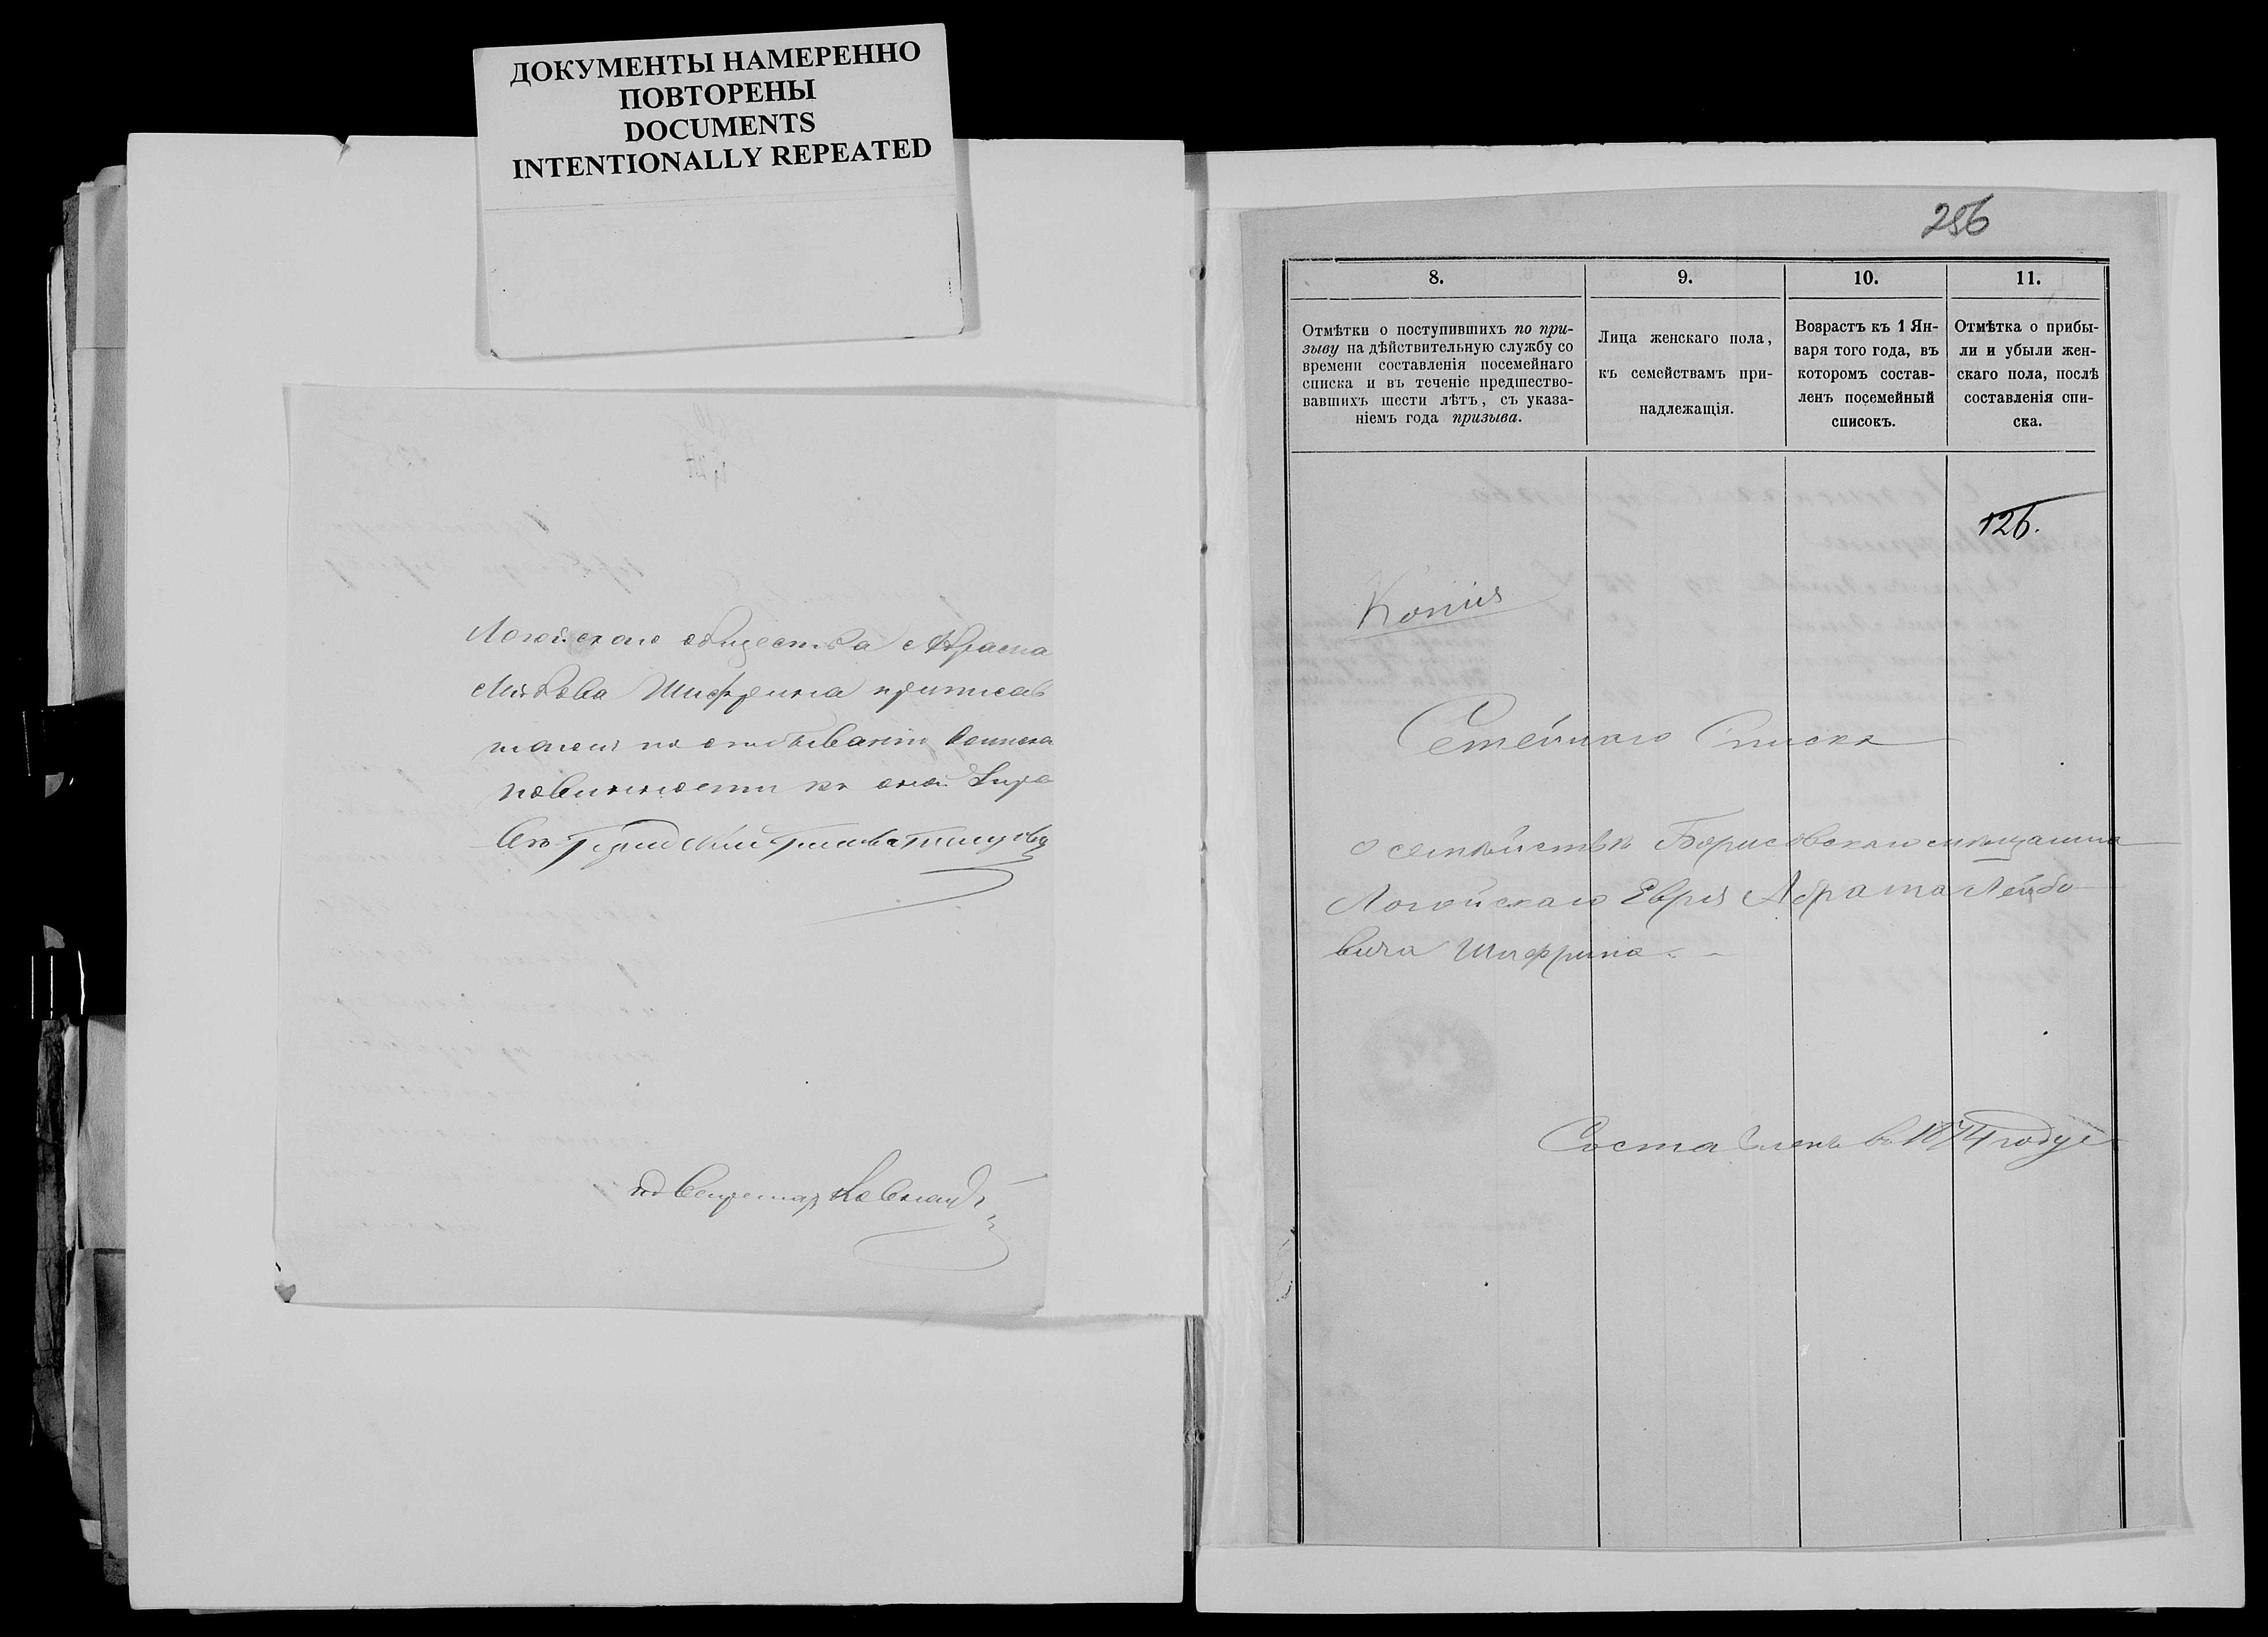 ДОКУМЕНТЫ НАМЕРЕННО
ПОВТОРЕНЫ
DOCUMENTS
INTENTIONALLY REPEATED
Логойскаго общества Абрама
Лейбова Шифрина приписав
по отбыванію воинской
повинности къ оной Упра
Секретарь
256
8.
9.
10.
11.
Отмѣтки о поступившихъ по при-
зыву на дѣйствительную службу со
времени составленія посемейнаго
списка и въ теченіе предшество-
вавшихъ шести лѣтъ, съ указа-
ніемъ года призыва.
Лица женскаго пола,
къ семействамъ при-
надлежащія.
Возрастъ къ 1 Ян-
варя того года, въ
которомъ состав-
ленъ посемейный
списокъ.
Отмѣтка о прибы-
ли и убыли жен-
скаго пола, послѣ
составленія спи-
ска.
126.
Копія
Семейнаго Списка
о семействѣ Борисовскаго мѣщанина
Логойскаго Еврея Абрама Лейбо
вича Шифрина.
Составленъ въ 1874 году